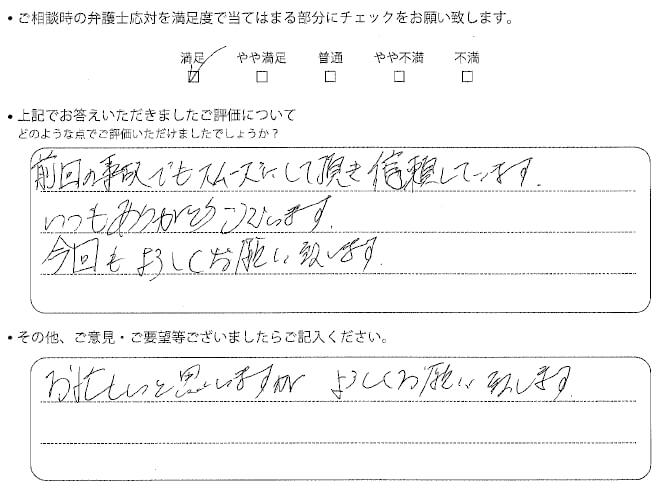 ・ご相談時の弁護士応対を満足度で当てはまる部分にチェックをお願い致します。
満足 やや満足 普通 やや不満 不満
・上記でお答えいただきましたご評価について
どのような点でご評価いただけましたでしょうか?
前回の事故でもスムーズにして頂き信頼しています.
いつもありがとうございます.
今回もよろしくお願い致します.
・その他、ご意見・ご要望等ございましたらご記入ください。
お忙しいと思いますが よろしくお願い致します.